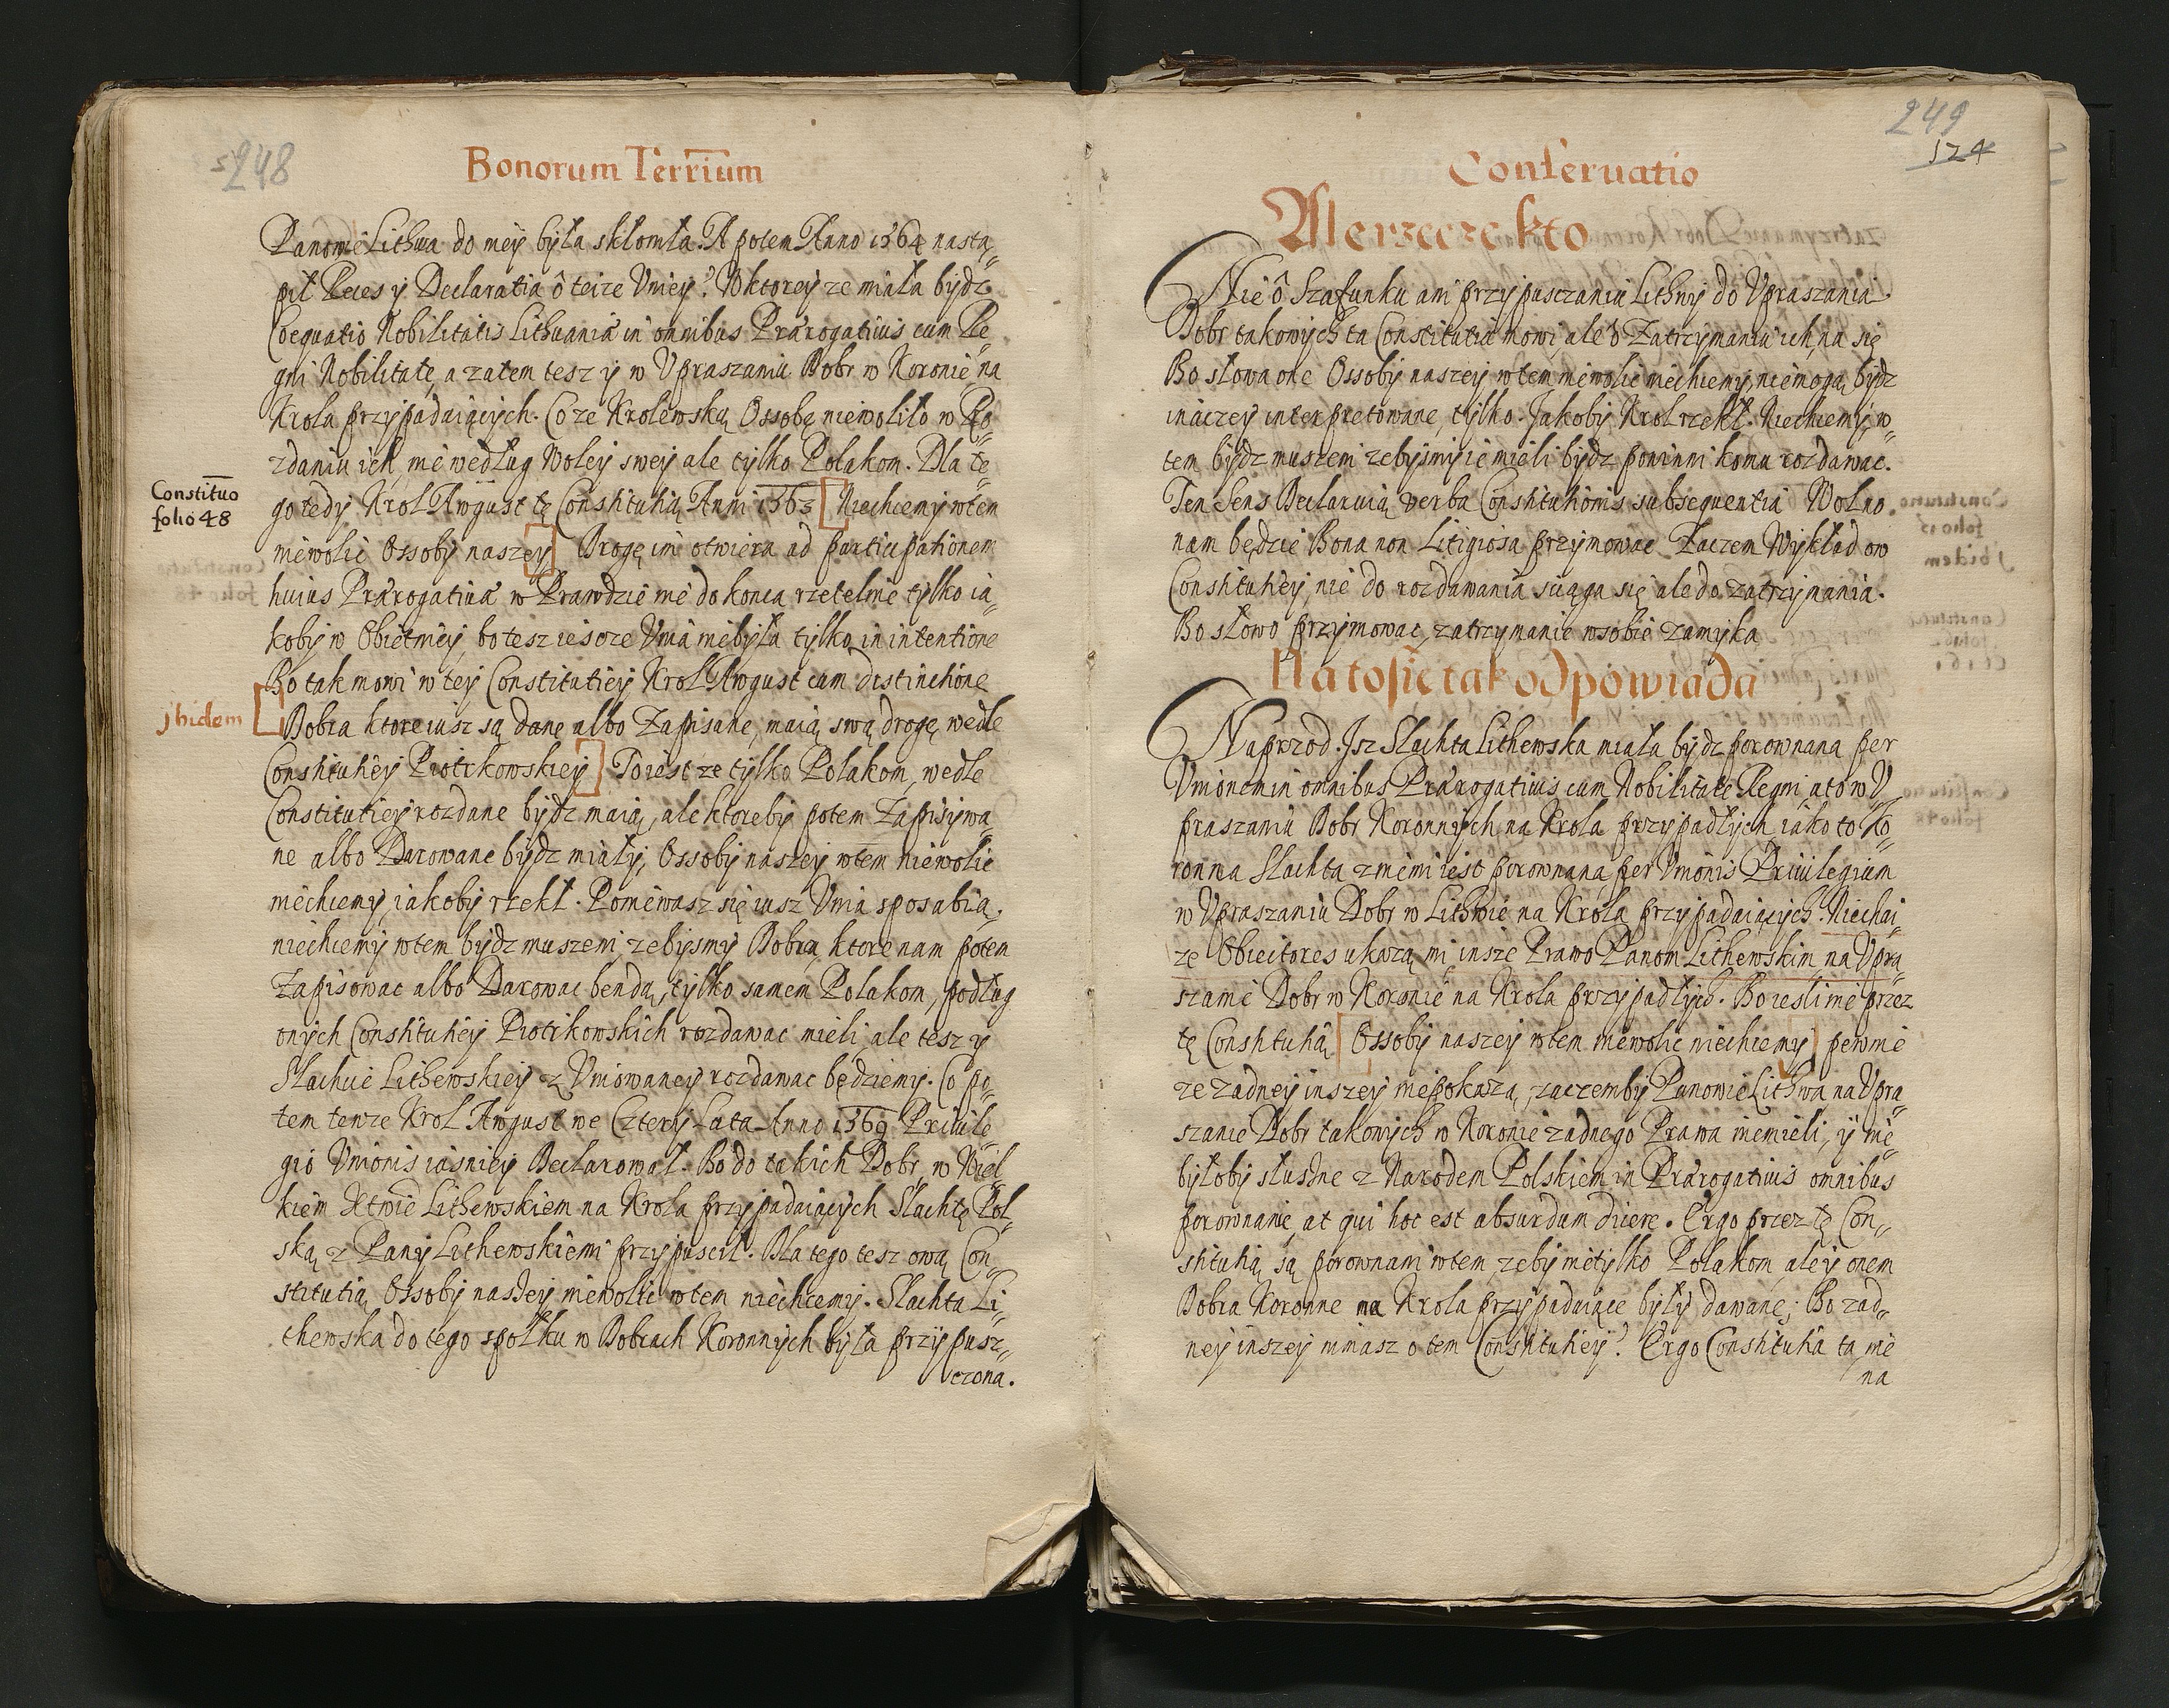 248
Bonorum Terrium
Panowie Lithwa do niey była skłoniła. A potem Anno 1564 nasta„
pił Reces y Declaratia ô teize Vniey? W ktorey ze miała bydz
Coequatio Nobilitatis Lithuaniæ in omnibus Prærogatiuis cum Re„
gni Nobilitate, a zatem tesz y w Vpraszaniu Dobr w Koronie, na
Krola przypadaiących. Co ze Krolewską Ossobę niewoliło w Ro„
zdaniu ich, nie według Woley swey ale tylko Polakom. Dla te„
Constituo
folio 48
go tedy Krol Awgust tę Constitutią Anni 1563 [Niechcemy wtem
niewolic Ossoby naszey] Drogę im otwiera ad participationem
huius Prærogatiuæ w Prawdzie nie do konca rzetelnie tylko ia„
koby w Obietnicy, bo tesz iescze Vnia niebyła tylko in intentione
Bo tak mowi w tey Constitutiey Krol Awgust cum distinctione
jbidem
[Dobra ktore iusz są dane albo Zapisane, maią swą drogę wedle
Constitutiey Piotrkowskiey] To iest ze tylko Polakom, wedle
Constitutiey rozdane bydz maią, ale ktoreby potem Zapisywa„
ne albo Darowane bydz miały, Ossoby naszey wtem niewolic
niechcemy, iakoby rzekł. Poniewasz się iusz Vnia sposabia,
niechcemy wtem bydz muszeni, zebysmy Dobra, ktore nam potem
Zapisowac albo Darowac bendą, tylko samem Polakom, podług
onych Constitutiey Piotrkowskich rozdawac mieli, ale tesz y
Slachcie Lithewskiey z Vniowaney rozdawac będziemy. Co po„
tem tenze Krol Awgust we Cztery Lata Anno 1569 Priuile„
gio Vnionis iasniey Declarował. Bo do takich Dobr, w Wiel„
kiem Xtwie Lithewskiem na Krola przypadaiących Slachtę Pol„
ską z Pany Lithewskiemi przypuscił. Dla tego tesz ową Con„
stitutią Ossoby naszey niewolic wtem niechcemy. Slachta Li„
thewska do tego społku w Dobrach Koronnych była przypusz„
czona.
249
124
Conseruatio
Alerzeczekto
Nie ô Szafunku ani przypusczaniu Lithwy do Vpraszania
Dobr takowych ta Constitutia mowi, ale ô Zatrzymaniu ich, na się
Bo słowa one Ossoby naszey wtem niewolic niechcemy, niemogą bydz
inaczey interpretowane, tylko. Jakoby Krol rzekł. Niechcemy w„
tem bydz muszeni zebysmy ie mieli bydz powinni komu rozdawac.
Ten Sens Declaruią verba Constitutionis subsequentia Wolno
nam będzie Bona non Litigiosa przymowac Zaczem Wykład ow
Constitutiey, nie do rozdawania sciąga się ale do zatrzymania.
Bo słowo przymowac, zatrzymanie wsobie zamyka
Na to się tak odpowiada
Naprzod. Jsz Slachta Lithewska miała bydz porownana per
Vnionem in omnibus Prærogatiuis cum Nobilitate Regni, a to w V„
praszaniu Dobr Koronnych na Krola przypadłych, iako to Ko„
ronna Slachta z niemi iest porownana, per Vnionis Priuilegium
w Vpraszaniu Dobr w Lithwie na Krola przypadaiących. Niechai„
ze Obiectores ukazą mi insze Prawo Panom Lithewskim, na Vpra„
szanie Dobr w Koronie na Krola przypadłych. Bo iesli nie przez
tę Constitutią [Ossoby naszey wtem niewolic niechcemy] pewnie
ze zadney inszey niepokazą, zaczemby Panowie Lithwa na Vpra„
szanie Dobr takowych w Koronie zadnego Prawa niemieli, y nie„
byłoby słuszne z Narodem Polskiem in Prærogatiuis omnibus
porownanie, at qui hoc est absurdum dicere. Ergo przez tę Con„
stitutią są porownani wtem, zeby nietylko Polakom, ale y onem
Dobra Koronne na Krola przypadaiące były dawane; Bo zad„
ney inszey niniasz o tem Constitutiey? Ergo Constitutia ta nie
na